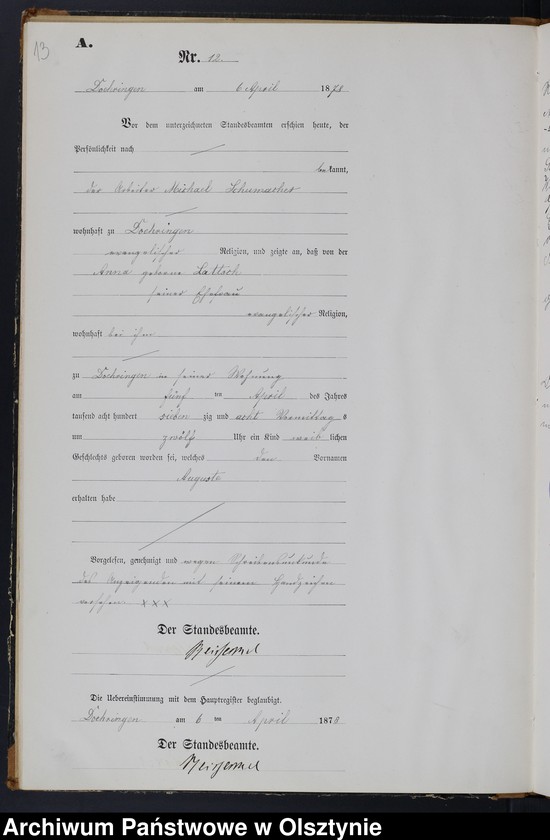 13
A.
Nr. 12.
Döhringen am 6 April 1878
Vor dem unterzeichneten Standesbeamten erschien heute, der
Persönlichkeit nach
bekannt,
der Arbeiter Michael Schumacher
wohnhaft zu Döhringen
evangelischer Religion, und zeigte an, daß von der
Anna geborene Lattoch
seiner Ehefrau
evangelischer Religion,
wohnhaft bei ihm
zu Döhringen in seiner Wohnung
am fünf ten April des Jahres
tausend acht hundert sieben zig und acht Vormittag s
um zwölf Uhr ein Kind weib lichen
Geschlechts geboren worden sei, welches den Vornamen
Auguste
erhalten habe
Vorgelesen, genehmigt und wegen Schreibensunkunde
des Anzeigenden mit seinem Handzeichen
versehen XXX
Der Standesbeamte.
Die Uebereinstimmung mit dem Hauptregister beglaubigt.
Döhringen am 6 ten April 1878
Der Standesbeamte.
Archiwum Państwowe w Olsztynie